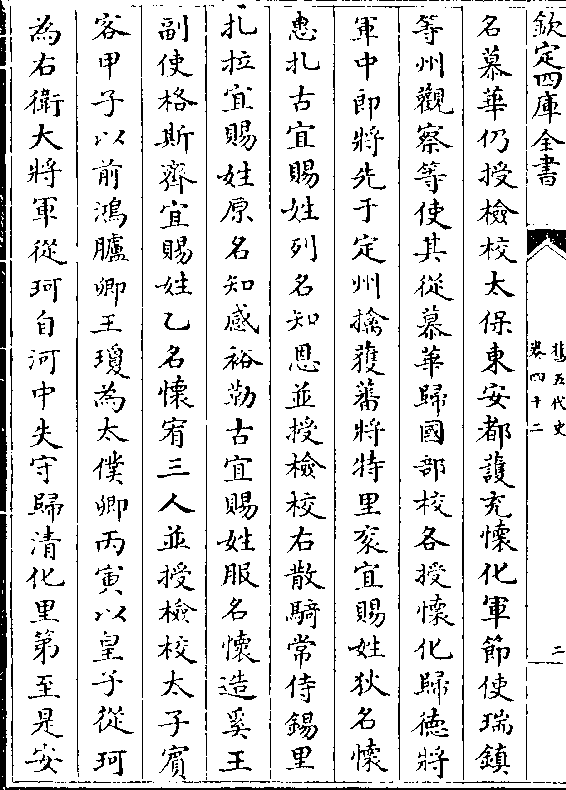 欽定四庫全書
舊五代史
卷四十二
二
名慕華仍授檢校太保東安都護充懷化軍節使瑞鎮
等州觀察等使其從慕華歸國部校各授懷化歸德將
軍中郎將先于定州擒獲蕃將特里袞宜賜姓狄名懷
惠扎古宜賜姓列名知恩並授檢校右散騎常侍錫里
扎拉宜賜姓原名知感裕勒古宜賜姓服名懷造奚王
副使格斯齊宜賜姓乙名懷宥三人並授檢校太子賓
客甲子以前鴻臚卿王瓊為太僕卿丙寅以皇子從珂
為右衛大將軍從珂自河中失守歸清化里第至是安